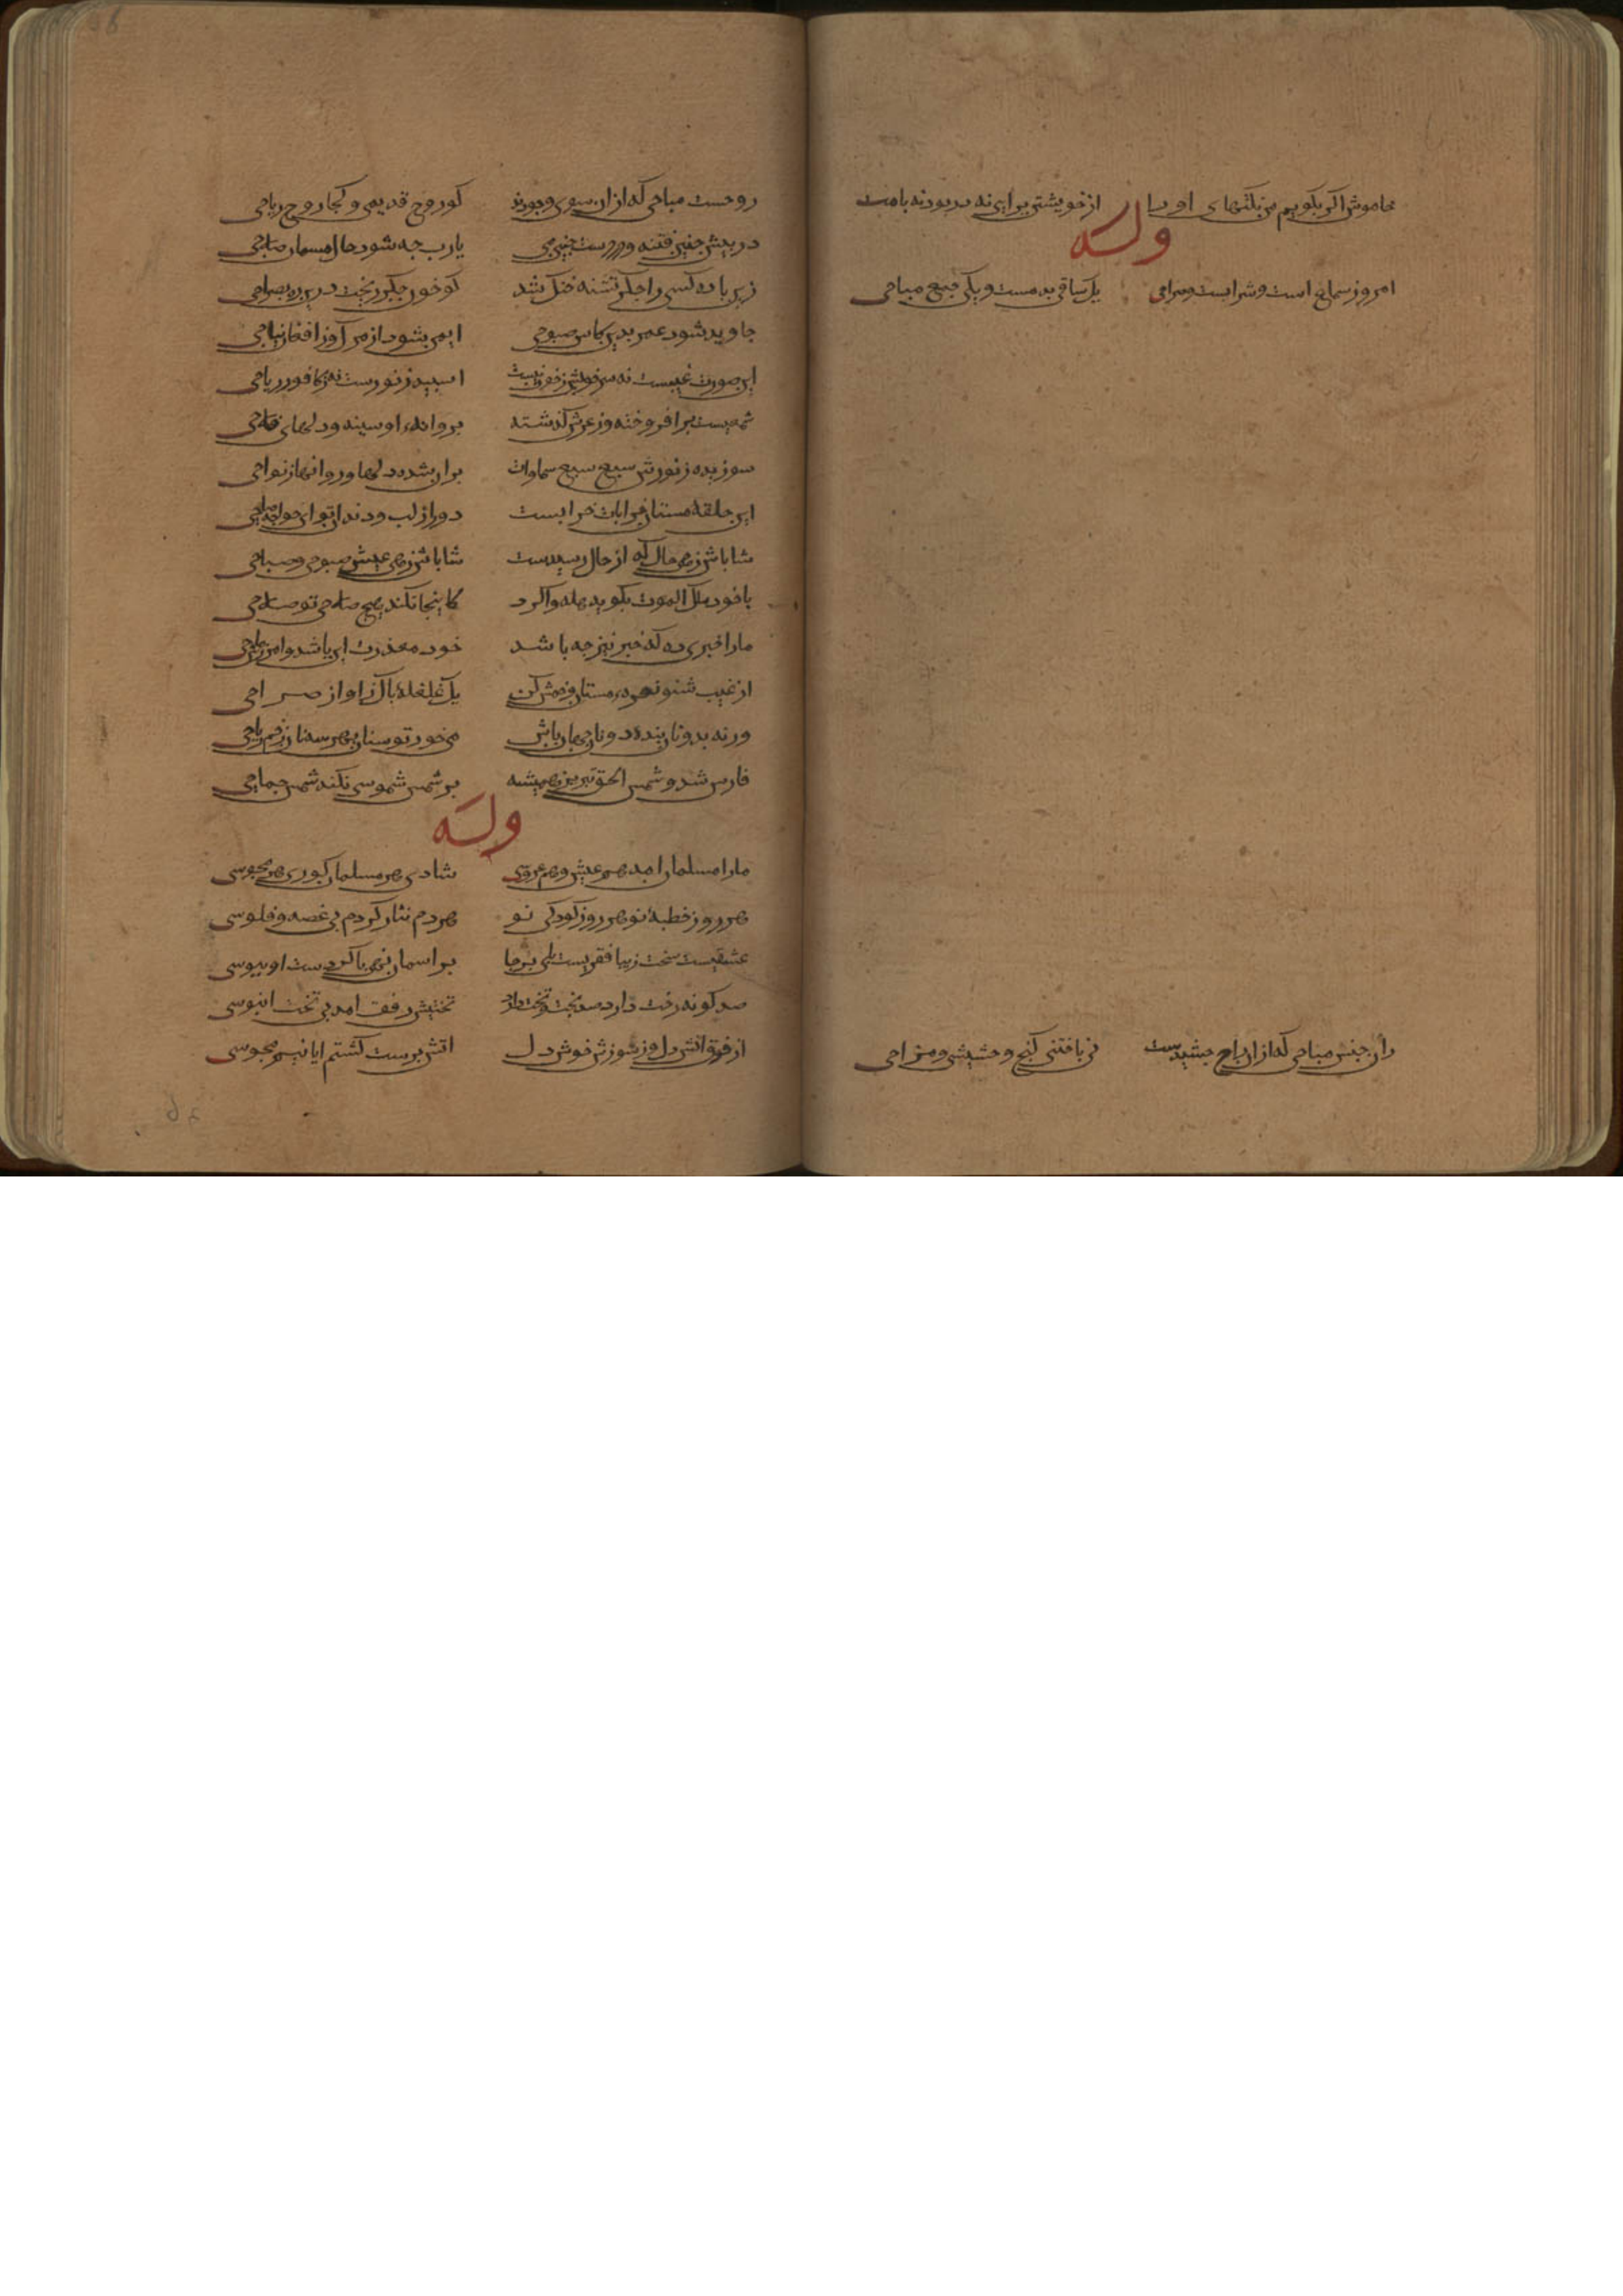 خاموش اکر بکویم من نکتهای اورا از خویشتن برایی نه در بود نه بامت
وله
امروز سماع است و شرابست و صراحی یک ساقی بدمست و یکی جمع مباحی
زان جنس مباحی که از ان
نی بافتنی کنج و حشیشی و مزاحی
روحست مباحی که از ان سوی وجودند کو روح قدیمی و کجا روح ریاحی
در پیش چنین فتنه و در دست چنین می یارب جه شود حال مسلمان صلاحی
زین باده کسی را جکر تشنه خنک شد کو خون جکر ریخت درین ره بصراحی
جاوید شود عمر بدین کاس صبوحی ایمن بشود از مرک وز افغان نیاحی
این صورت غیبست نه سرخیش ز خونست اسبید ز نورست نه کافور ریاحی
شمعیست برافروخته وز عرش کذشته بروانهء او سینه و دلهای فلاحی
سوزیده ز نورش سبع سبع سماوات بران شده دلها و روانها ز نواحی
این حلقه مستان خرابات خرابست دور از لب و دندان تو ای خواجه صاحی
شاباش زهی حال که از حال رسیدست شاباش زهی عیش صبوحی و صباحی
با خود ملک الموت بکوید هله واکرد کاینجا نکند هیچ صلاحی تو صلاحی
ما را خبری ده که خبر نیز جه باشد خود معذرت این باشد و امن
از غیب شنو نعرهء مستان و خمش کن یک غلغلهٔ باک ز اواز صراحی
ورنه بدونان بنده دونان جهان باش می خور تو سنان بهر سه نان زخم رماحی
فارس شد و شمس الحق تبریز همیشه بر شمس شموسی نکند شمس جماحی
وله
مارا مسلمان امد هم عیش و هم عروسی شادی هر مسلمان کوری هر مجوسی
هر روز خطبهٔ نو هر روز کودکی نو هردم نثار کردم بی غصه و فلوسی
عشقیست سخت زیبا فقریست بای برجا بر اسمان نهی با کر دست او ببوسی
صد کونه رخت دارد صد بخت و تخت دارد تختیش رفق امد بی تخت ابنوسی
از ذوق اتش دل وز سوزش خوش دل اتش برست کشتم اما نیم مجوسی